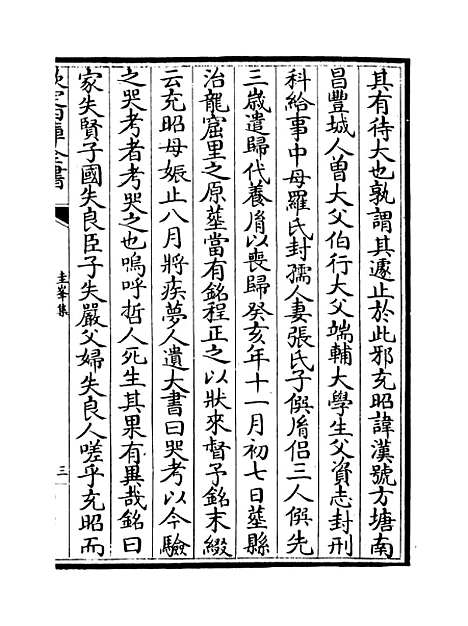 其有待大也孰謂其遽止於此邪充昭諱漢號方塘南
昌豐城人曽大父伯行大父端輔大學生父資志封刑
科給事中母羅氏封孺人妻張氏子僎脩侣三人僎先
三歳遣歸代養脩以喪歸癸亥年十一月初七日塟縣
治龍窟里之原塟當有銘程正之以狀來督予銘末綴
云充昭母娠止八月將疾夢人遺大書曰哭考以今驗
之哭考者考哭之也嗚呼哲人死生其果有異哉銘曰
家失賢子國失良臣子失嚴父婦失良人嗟乎充昭而
欽定四庫全書
圭峯集
三